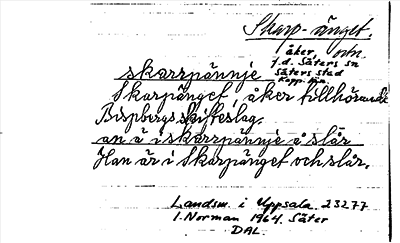 Skarp-änget.
åker,
f.d. Säters sn
Säters stad
Kopp. län.
skarrpännje
Skarpänget, åker tillhörande
Bispbergs skifteslag.
an ä i skarrpännje å slår
Han är i Skarpänget och slår.
Landsm. i Uppsala 23277
I. Norman 1964. Säter
DAL.